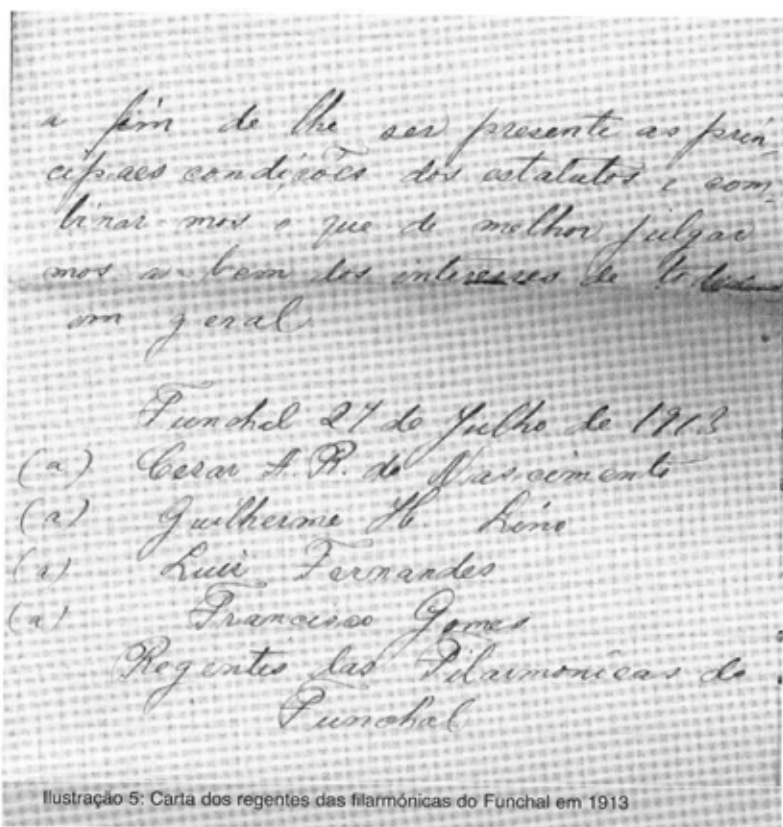 a fim de lhe ser presente as prin-
cipaes condições dos estatutos e com-
binar-mos o que de melhor julgar-
mos a bem dos interesses de todos
em geral
Funchal 27 de Julho de 1913
(a) Cesar A. R. do Nascimento
(a) Guilherme H. Lino
(a) Luiz Fernandes
(a) Francisco Gomes
Regentes das Filarmonicas do
Funchal
Ilustração 5: Carta dos regentes das filarmónicas do Funchal em 1913